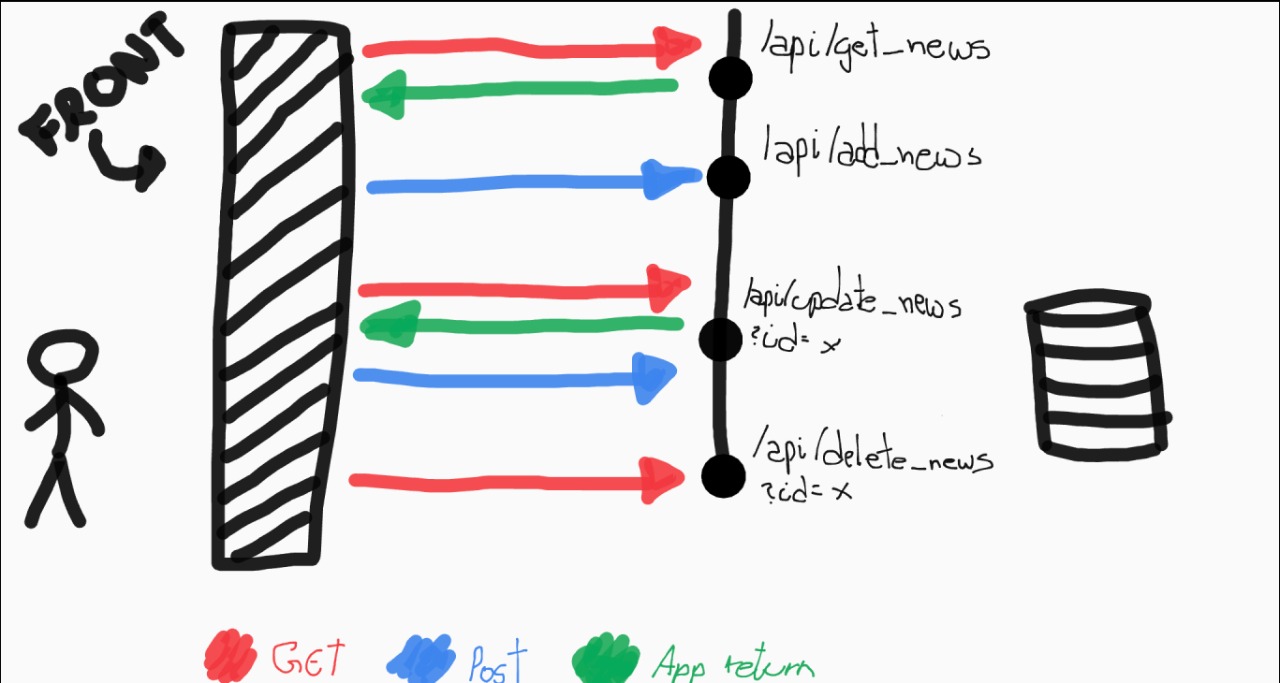 FRONT
/api/get_news
/api/add_news
/api/update_news
?id= x
/api/delete_news
?id= x
GET
Post
App return